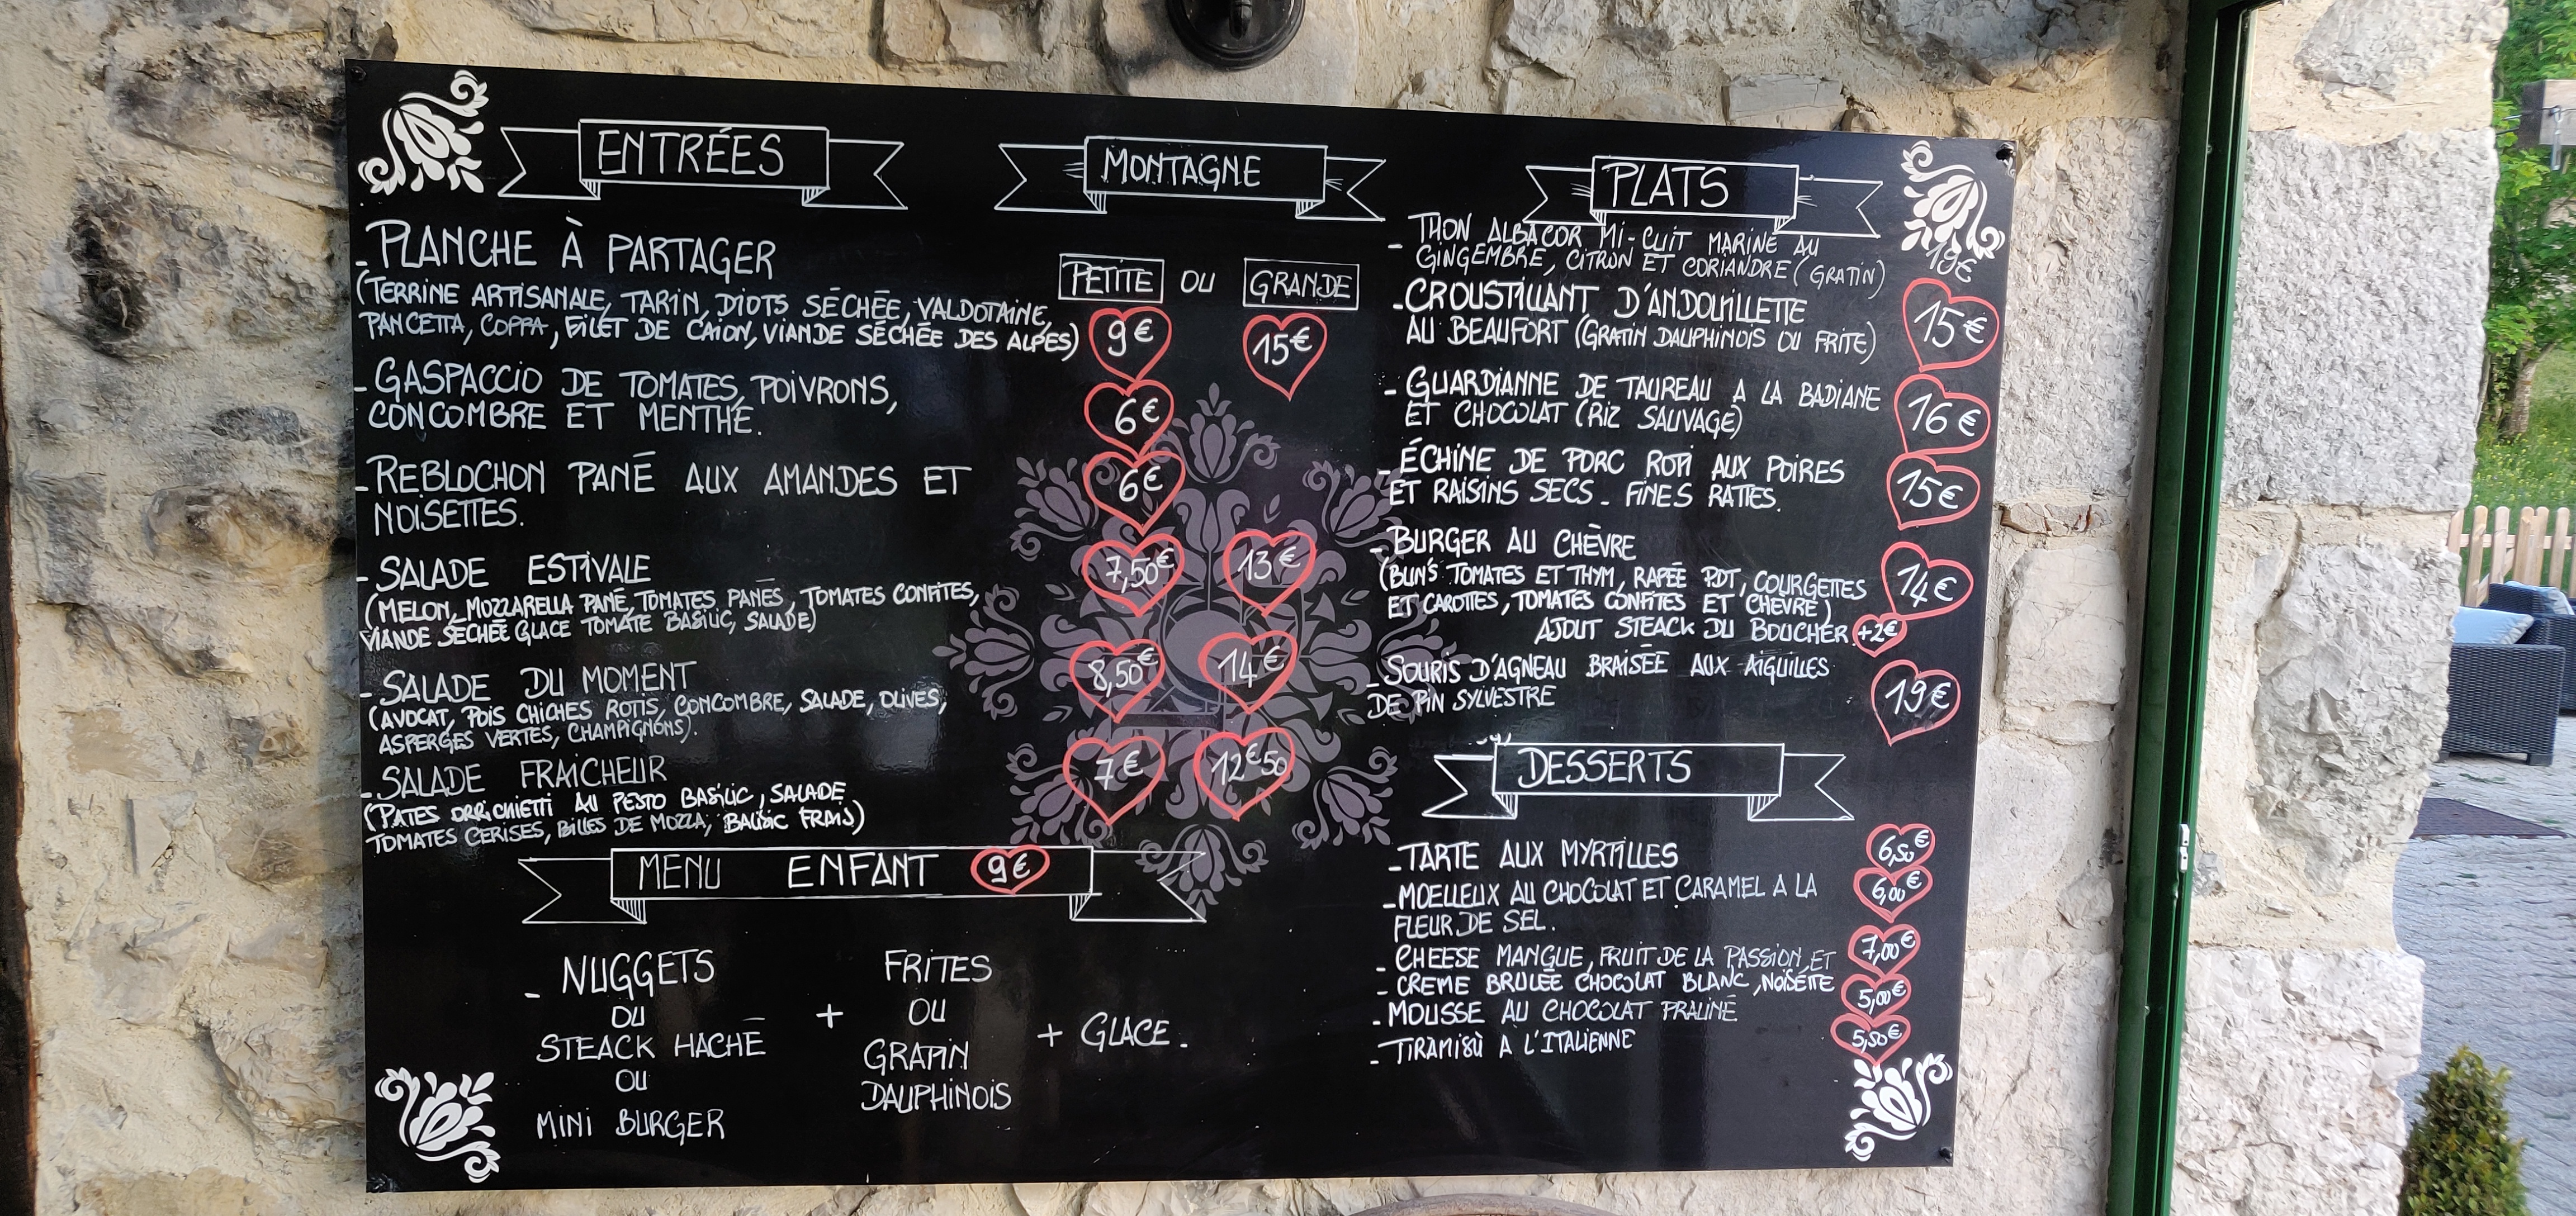 ENTRÉES
- PLANCHE À PARTAGER
(TERRINE ARTISANALE, TARIN, DIOTS SÉCHÉE, VALDOTAINE,
PANCETTA, COPPA, FILET DE CAION, VIANDE SÉCHÉE DES ALPES)
- GASPACCIO DE TOMATES, POIVRONS,
CONCOMBRE ET MENTHE.
- REBLOCHON PANÉ AUX AMANDES ET
NOISETTES.
- SALADE ESTIVALE
(MELON, MOZZARELLA PANÉ, TOMATES PANÉS, TOMATES CONFITES,
VIANDE SÉCHÉE GLACE TOMATE BASILIC, SALADE)
- SALADE DU MOMENT
(AVOCAT, POIS CHICHES ROTIS, CONCOMBRE, SALADE, OLIVES,
ASPERGES VERTES, CHAMPIGNONS).
- SALADE FRAICHEUR
(PATES ORRICHIETTI AU PESTO BASILIC, SALADE
TOMATES CERISES, BILLES DE MOZZA, BALISIC FRAIS)
MONTAGNE
PETITE OU GRANDE
9€ 15€
6€
6€
7,50€ 13€
8,50€ 14€
7€ 12€50
MENU ENFANT 9€
- NUGGETS
OU
STEACK HACHÉ
OU
MINI BURGER
+
FRITES
OU
GRATIN
DAUPHINOIS
+ GLACE.
PLATS
- THON ALBACOR MI-CUIT MARINE AU
GINGEMBRE, CITRON ET CORIANDRE (GRATIN) 19€
- CROUSTILLANT D'ANDOUILLETTE
AU BEAUFORT (GRATIN DAUPHINOIS OU FRITE) 15€
- GUARDIANNE DE TAUREAU A LA BADIANE
ET CHOCOLAT (RIZ SAUVAGE) 16€
- ÉCHINE DE PORC ROTI AUX POIRES
ET RAISINS SECS - FINES RATTES. 15€
- BURGER AU CHÈVRE
(BUN'S TOMATES ET THYM, RAPÉE PDT, COURGETTES 14€
ET CAROTTES, TOMATES CONFITES ET CHÈVRE)
AJOUT STEACK DU BOUCHER +2€
- SOURIS D'AGNEAU BRAISÉE AUX AIGUILLES
DE PIN SYLVESTRE 19€
DESSERTS
- TARTE AUX MYRTILLES 6,50€
- MOELLEUX AU CHOCOLAT ET CARAMEL A LA 6,00€
FLEUR DE SEL.
- CHEESE MANGUE, FRUIT DE LA PASSION, ET 7,00€
- CREME BRULÉE CHOCOLAT BLANC, NOISÉTTE
- MOUSSE AU CHOCOLAT PRALINÉ 5,00€
- TIRAMISÙ A L'ITALIENNE 5,50€